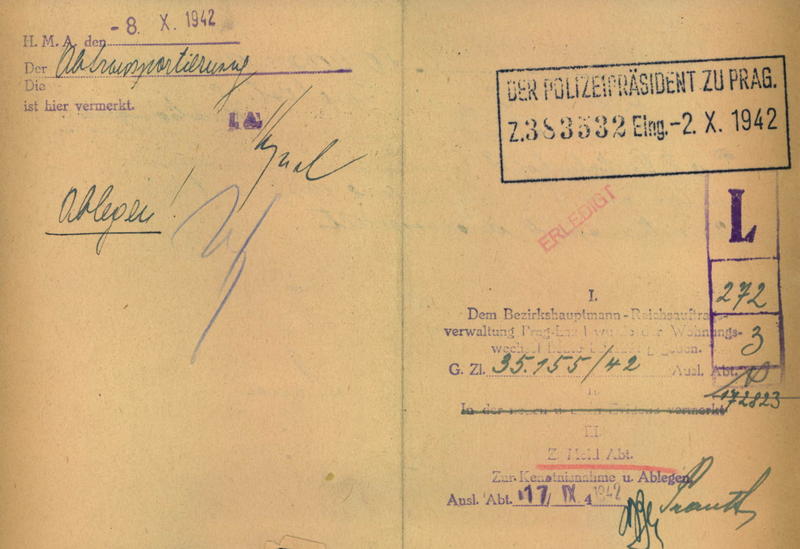 H. M. A. den - 8. X. 1942
Der Abtransportierung
Die
ist hier vermerkt.
I. A.
Ablegen!
DER POLIZEIPRÄSIDENT ZU PRAG.
Z. 383532 Eing. - 2. X. 1942
ERLEDIGT
L
272
3
172823
I.
Dem Bezirkshauptmann-Reichsauftrags-
verwaltung Prag-Land wurde der Wohnungs-
wechsel
G. Zl. 35.155/42 Ausl. Abt.
In der vermerkt
III.
Z. Meld Abt.
Zur Kenntnisnahme u. Ablegen.
Ausl. Abt. 17. IX. 1942